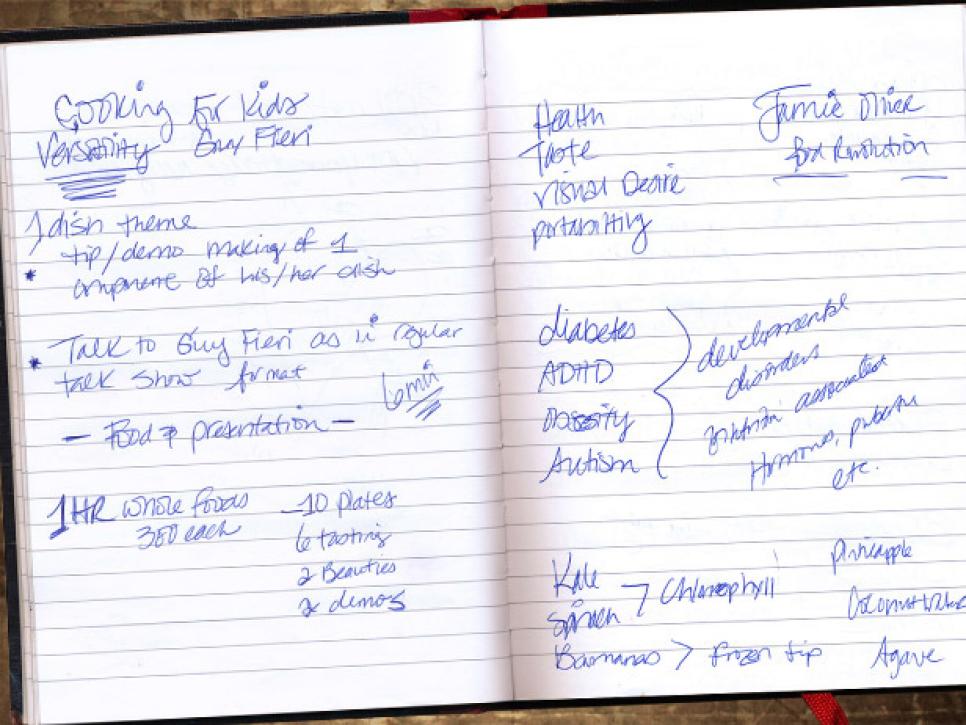 Cooking for Kids
Versatility Guy Fieri
1 dish theme
tip/demo making of 1
* component of his/her dish
* Talk to Guy Fieri as in regular
talk show format
6 min
- Food & presentation -
1 HR whole foods
350 each
- 10 plates
6 tasting
2 Beauties
2 demos
Health
Taste
Visual Desire
portability
Jamie Oliver
Food Revolution
diabetes
ADHD
Obesity
Autism
developmental
disorders
associated
Hormones, puberty
etc.
Kale
Spinach
> Chlorophyll
Bananas > frozen tip
Pineapple
Coconut water
Agave